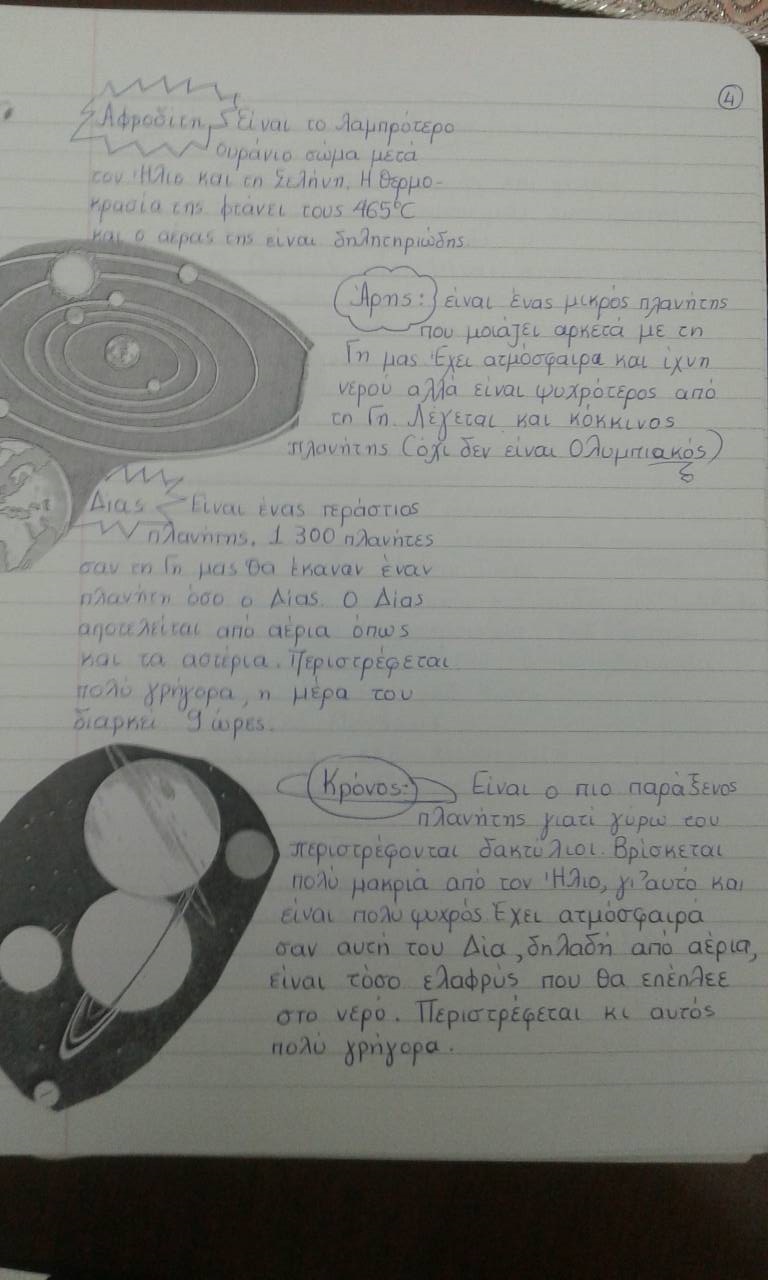 4
Αφροδίτη Είναι το λαμπρότερο
ουράνιο σώμα μετά
τον Ήλιο και τη Σελήνη. Η θερμο-
κρασία της φτάνει τους 465°C
και ο αέρας της είναι δηλητηριώδης
Άρης: είναι ένας μικρός πλανήτης
που μοιάζει αρκετά με τη
Γη μας Έχει ατμόσφαιρα και ίχνη
νερού αλλά είναι ψυχρότερος από
τη Γη. Λέγεται και κόκκινος
πλανήτης (όχι δεν είναι Ολυμπιακός)
Δίας Είναι ένας τεράστιος
πλανήτης. 1 300 πλανήτες
σαν τη Γη μας θα έκαναν έναν
πλανήτη όσο ο Δίας. Ο Δίας
αποτελείται από αέρια όπως
και τα αστέρια. Περιστρέφεται
πολύ γρήγορα, η μέρα του
διαρκεί 9 ώρες.
Κρόνος: Είναι ο πιο παράξενος
πλανήτης γιατί γύρω του
περιστρέφονται δακτύλιοι. Βρίσκεται
πολύ μακριά από τον Ήλιο, γι' αυτό και
είναι πολύ ψυχρός Έχει ατμόσφαιρά
σαν αυτή του Δία, δηλαδή από αέρια,
είναι τόσο ελαφρύς που θα επέπλεε
στο νερό. Περιστρέφεται κι αυτός
πολύ γρήγορα.